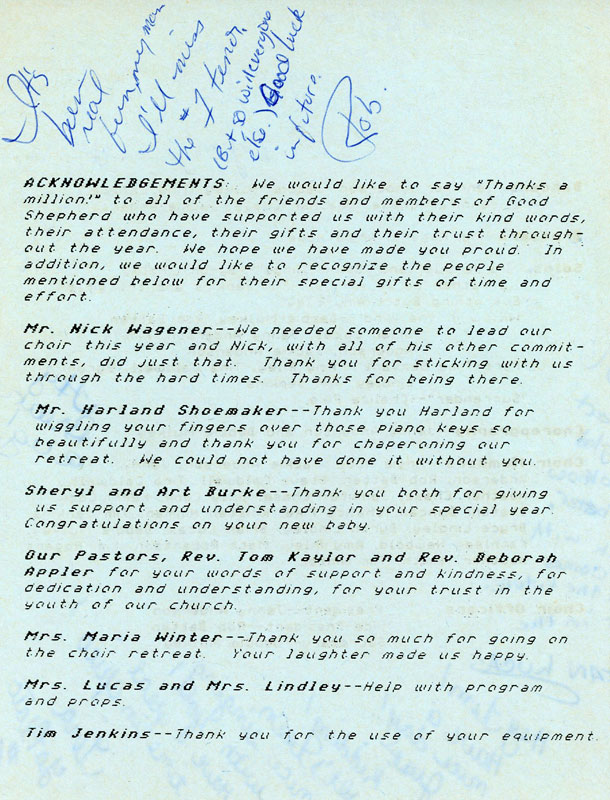 It's
been
real
fun, my man
I'll miss
the #1 tenor
(But so will everyone
else.) Good luck
in future.
Rob.
ACKNOWLEDGEMENTS: We would like to say "Thanks a
million!" to all of the friends and members of Good
Shepherd who have supported us with their kind words,
their attendance, their gifts and their trust through-
out the year. We hope we have made you proud. In
addition, we would like to recognize the people
mentioned below for their special gifts of time and
effort.
Mr. Nick Wagener--We needed someone to lead our
choir this year and Nick, with all of his other commit-
ments, did just that. Thank you for sticking with us
through the hard times. Thanks for being there.
Mr. Harland Shoemaker--Thank you Harland for
wiggling your fingers over those piano keys so
beautifully and thank you for chaperoning our
retreat. We could not have done it without you.
Sheryl and Art Burke--Thank you both for giving
us support and understanding in your special year.
Congratulations on your new baby.
Our Pastors, Rev. Tom Kaylor and Rev. Deborah
Appler for your words of support and kindness, for
dedication and understanding, for your trust in the
youth of our church.
Mrs. Maria Winter--Thank you so much for going on
the choir retreat. Your laughter made us happy.
Mrs. Lucas and Mrs. Lindley--Help with program
and props.
Tim Jenkins--Thank you for the use of your equipment.